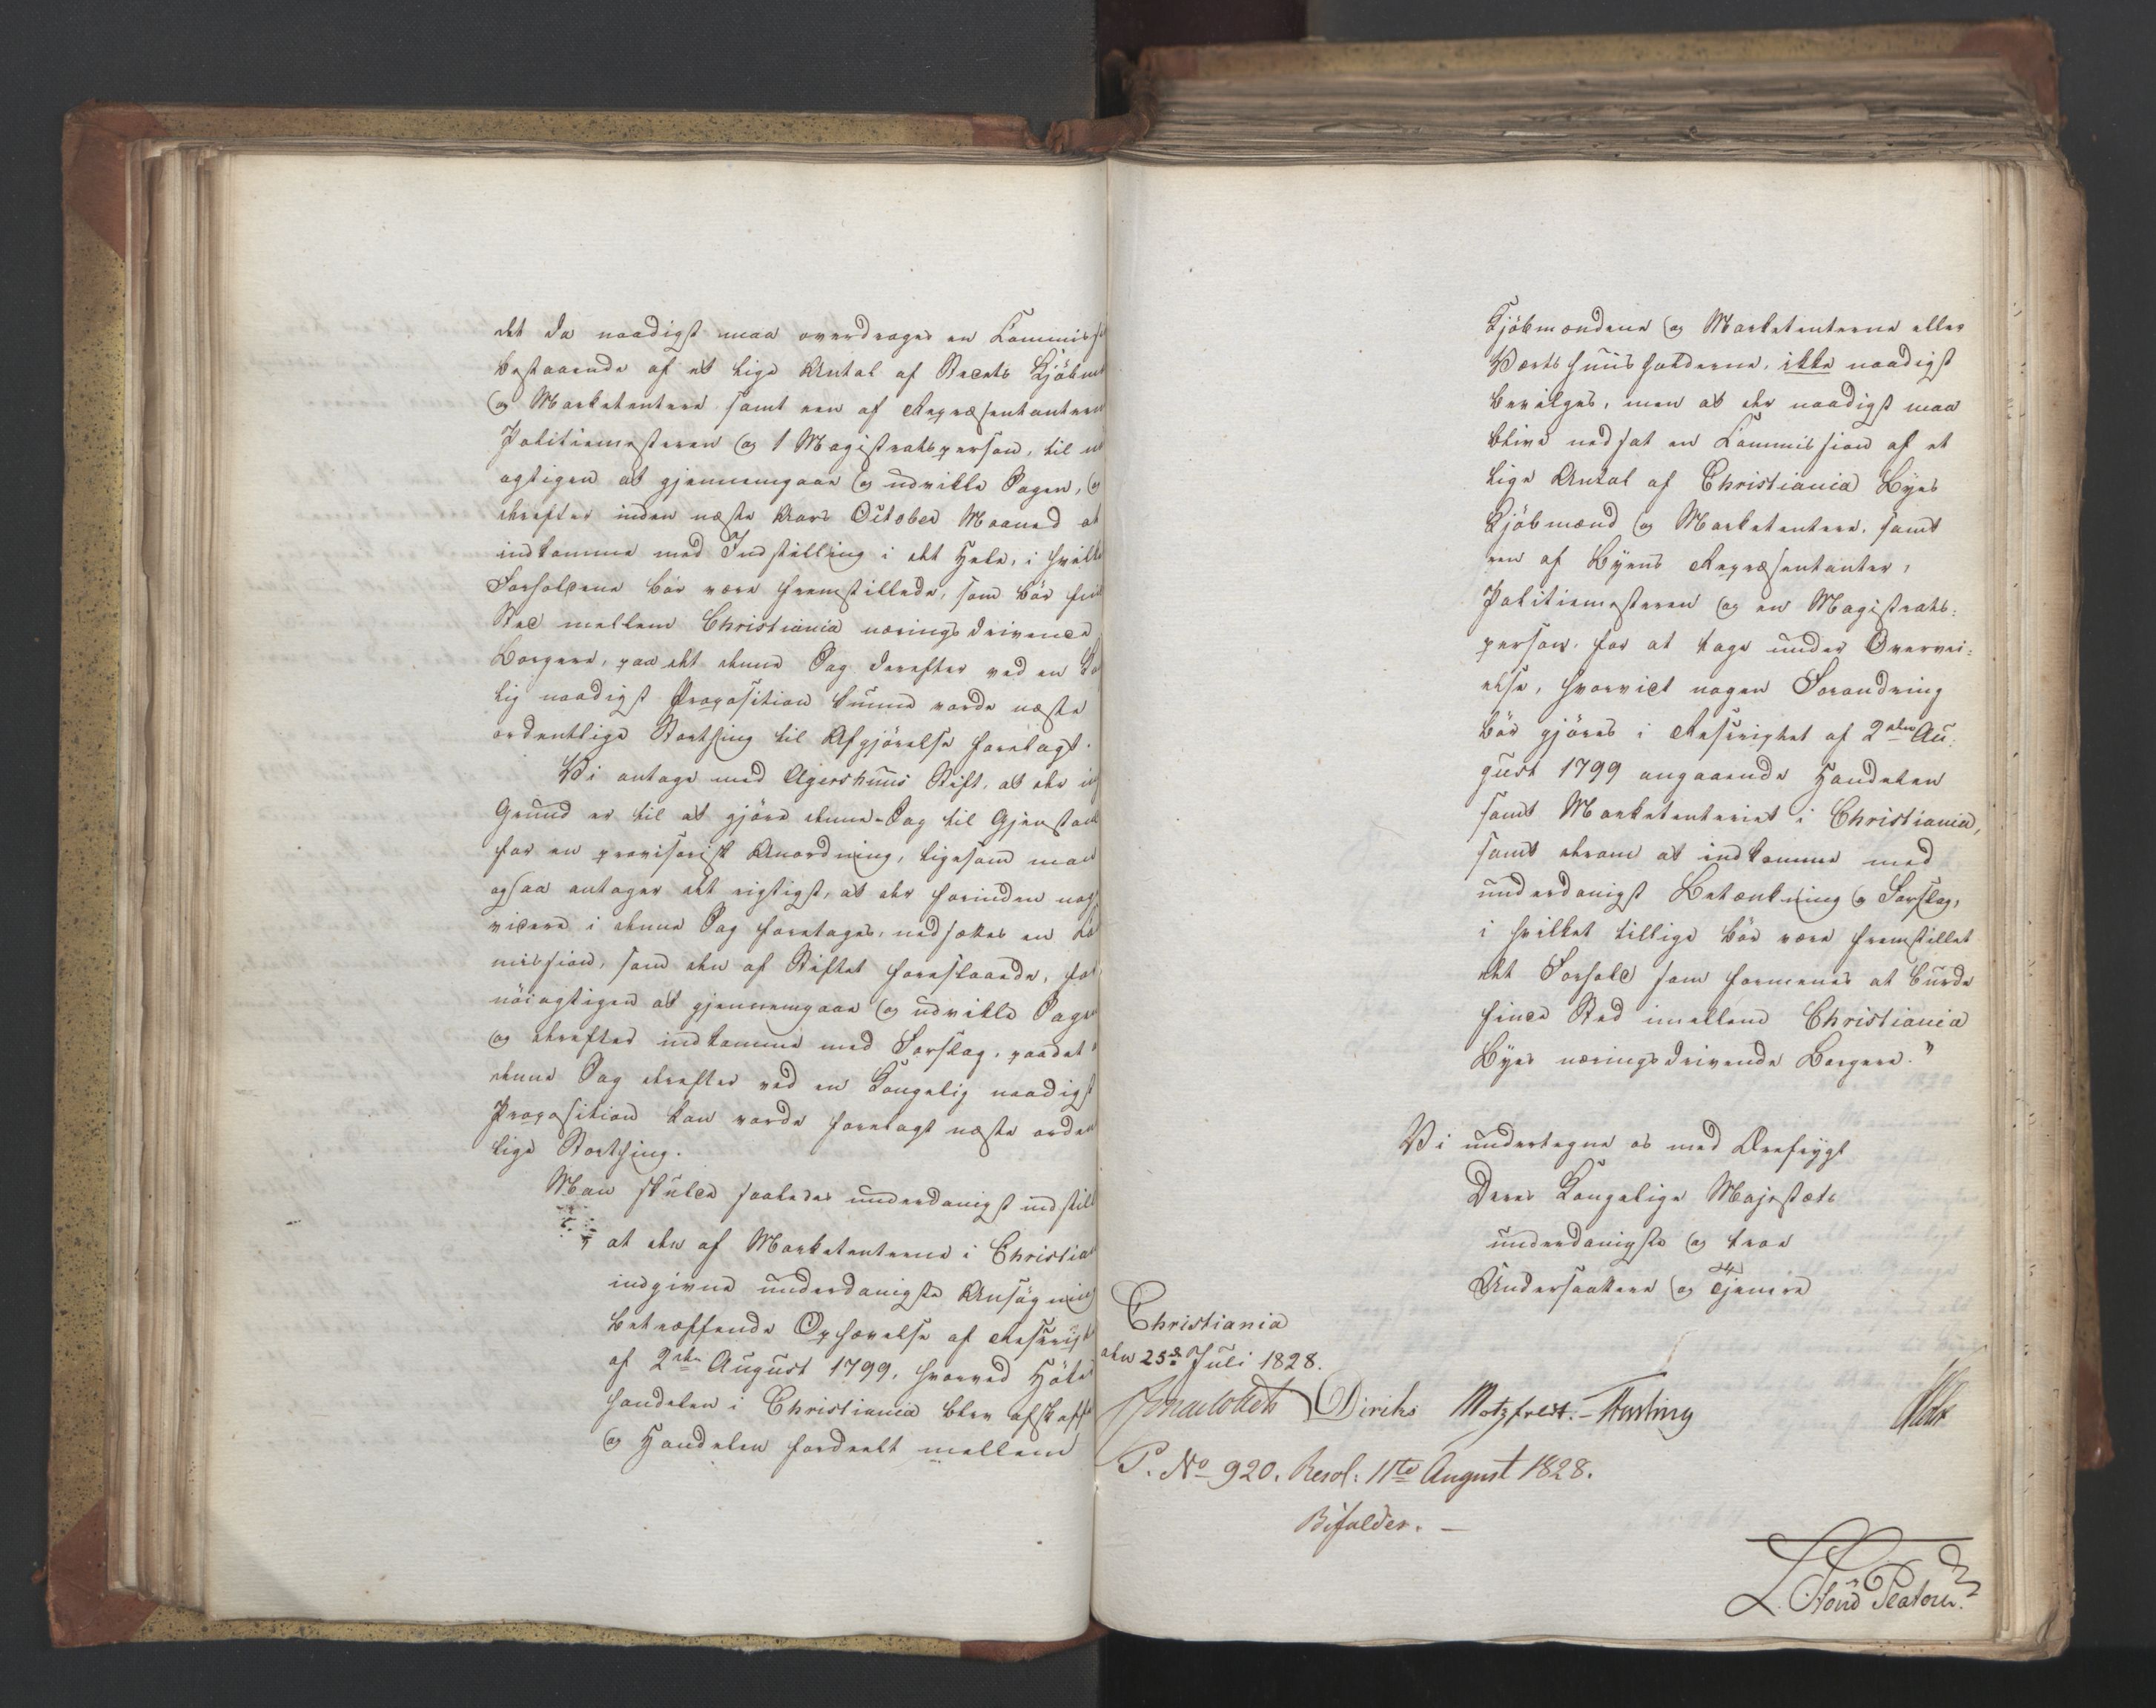 det da naadigst maa overdrages en Commiss
bestaaende af et lige Antal af Stedets Kjöbm
og Marketentere samt een af Repræsentanterne
Politiemesteren og 1 Magistratsperson, til n
agtigen at gjennemgaae og udvikle Sagen, og
derefter inden næste Aars October Maaned at
indkomme med Indstilling i det Hele, i hvilke
Forholdene bör være fremstillede, som bör fin
Sted mellem Christiania næringsdrivende
Borgere, paa det denne Sag derefter ved en Ko
lig naadigst Proposition kunne vorde næste
ordentlige Storthing til Afgjörelse forelagt.
Vi antage med Agershuus Stift, at der in
Grund er til at gjöre denne Sag til Gjenstan
for en provisorisk Anordning, ligesom man
ogsaa antager det rigtigst, at der forinden nog
videre i denne Sag foretages, nedsættes en Co
mission, som den af Stiftet foreslaaede, for
nöiagtigen at gjennemgaae og udvikle Sagen
og derefter indkomme med Forslag, paa det
denne Sag derefter ved en Kongelig naadigst
Proposition kan vorde forelagt næste orden
lige Storthing.
Man skulde saaledes underdanigst indstill
" at den af Marketenterne i Christia
indgivne underdanigste Ansögning
betræffende Ophævelse af Rescript
af 2den August 1799, hvorved Höker
handelen i Christiania blev afskaffe
og Handelen fordeelt mellem
Kjöbmændene og Marketenterne eller
Værtshuusholderne, ikke naadigst
bevilges, men at der naadigst maa
blive nedsat en Commission af et
lige Antal af Christiania Byes
Kjöbmænd og Marketentere, samt
een af Byens Repræsentanter,
Politiemesteren og en Magistrats:
person, for at tage under Overvei:
else, hvorvidt nogen Forandring
bör gjöres i Rescriptet af 2den Au:
gust 1799 angaaende Handelen
samt Marketenteriet i Christiania,
samt derom at indkomme med
underdanigst Betænkning og Forslag,
i hvilket tillige bör være fremstillet
det Forhold som formenes at burde
finde Sted imellem Christiania
Byes næringsdrivende Borgere."
Vi undertegne os med Ærefrygt
Deres Kongelige Majestæts
underdanigste og troe
Undersaattere og Tjenere
Christiania
den 25de Juli 1828.
Jonas Collett Diriks Motzfeldt. Fasting
P. No 920. Resol: 11te August 1828.
Bifalder. —